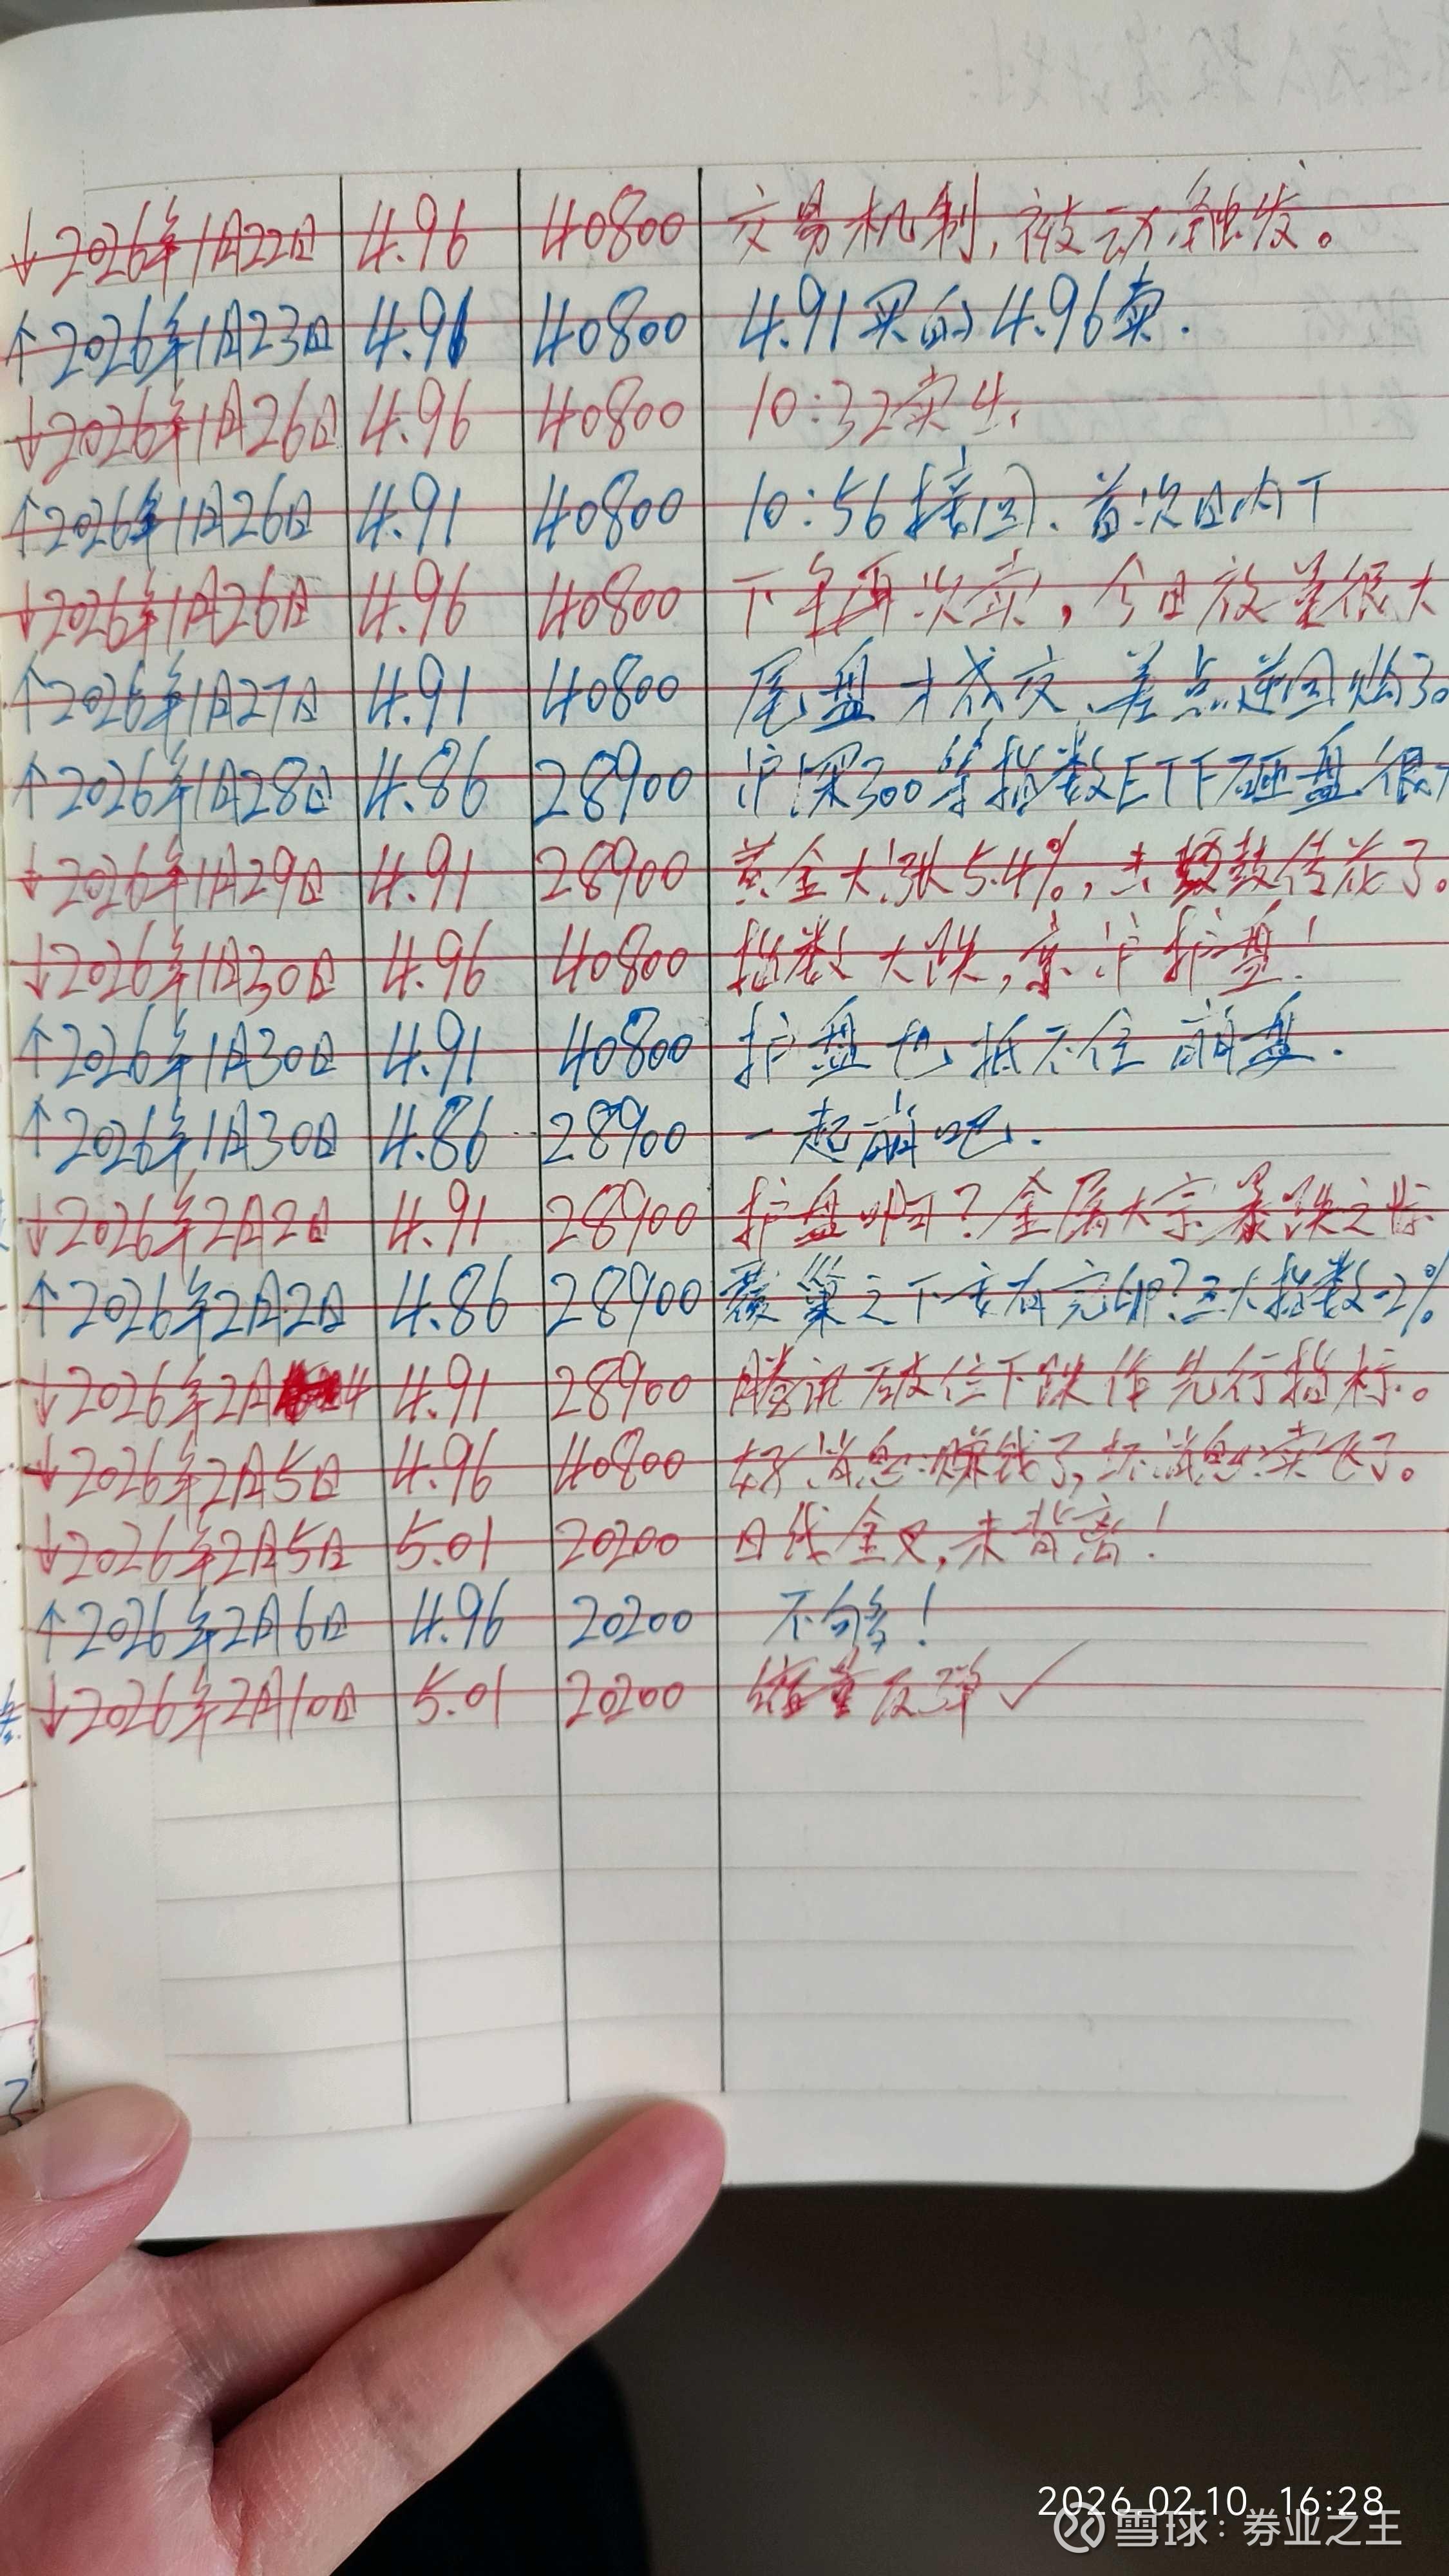 ↓2026年1月22日 4.96 40800 交易机制,被动触发。
↑2026年1月23日 4.91 40800 4.91买的4.96卖.
↓2026年1月26日 4.96 40800 10:32卖出.
↑2026年1月26日 4.91 40800 10:56接回、首次日内T
↓2026年1月26日 4.96 40800 下午再次卖,今日波差很大
↑2026年1月27日 4.91 40800 尾盘才成交、差点逆回购了。
↑2026年1月28日 4.86 28900 沪深300等指数ETF砸盘很
↓2026年1月29日 4.91 28900 黄金大涨5.4%,击鼓传花了。
↓2026年1月30日 4.96 40800 指数大跌,京沪护盘!
↑2026年1月30日 4.91 40800 护盘也抵不住崩盘.
↑2026年1月30日 4.86 28900 一起崩吧.
↓2026年2月2日 4.91 28900 护盘啊?金属大宗暴跌之际
↑2026年2月2日 4.86 28900 覆巢之下安有完卵?三大指数-2%
↓2026年2月4 4.91 28900 腾讯破位下跌作先行指标。
↓2026年2月5日 4.96 40800 好消息:赚钱了,坏消息:卖飞了。
↓2026年2月5日 5.01 20200 日线金叉,未背离!
↑2026年2月6日 4.96 20200 不够!
↓2026年2月10日 5.01 20200 缩量反弹✓
2026.02.10 16:28
雪球:券业之王